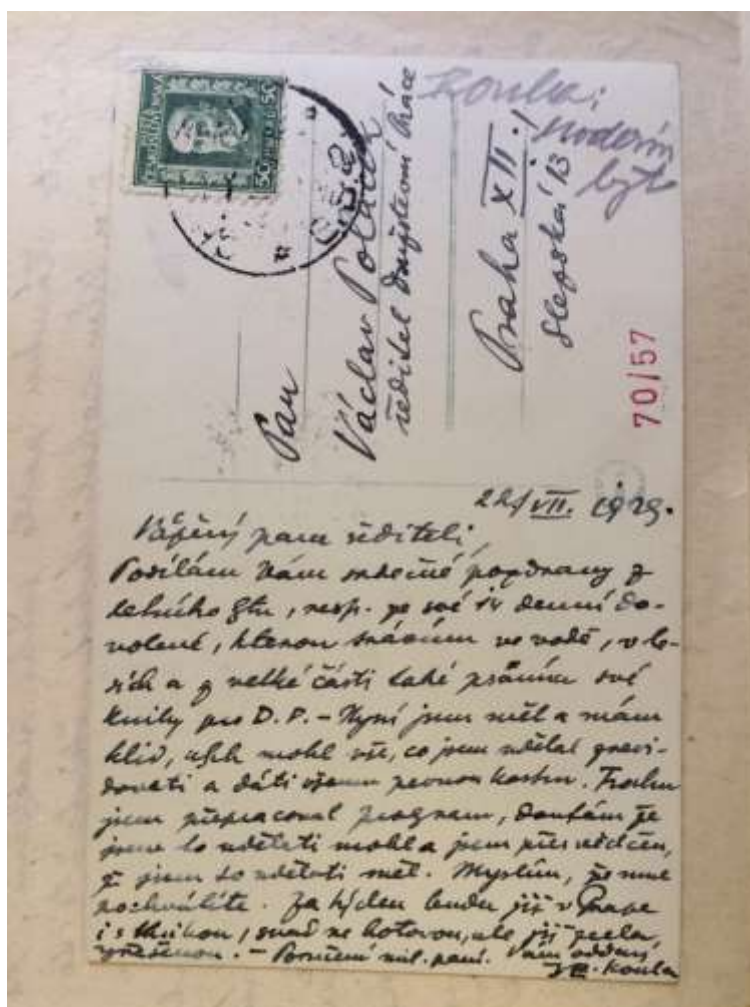 Koula:
moderní
byt
ČESKOSLOVENSKÁ
50 50
Pan
Václav Poláček
ředitel Družstevní Práce
Praha XII.!
Slezská 13
70/57
22/VII. 1929.
Vážený pane řediteli,
Posílám Vám srdečné pozdravy z
letního bytu, resp. ze své 14 denní do-
volené, kterou trávím ve vodě, v le-
sích a z velké části také psaním své
knihy pro D.P. – Nyní jsem měl a mám
klid, abych mohl vše, co jsem udělal prová-
dovati a dáti všemu pevnou kostru. Trochu
jsem přepracoval program, doufám že
jsem to udělati mohl a jsem přesvědčen,
že jsem to udělati měl. Myslím, že mne
pochválíte. Za týden budu již v Praze
i s knihou, snad ne hotovou, ale již zcela
vyřešenou. – Poručení mil. paní. Vám oddaný
J.E. Koula